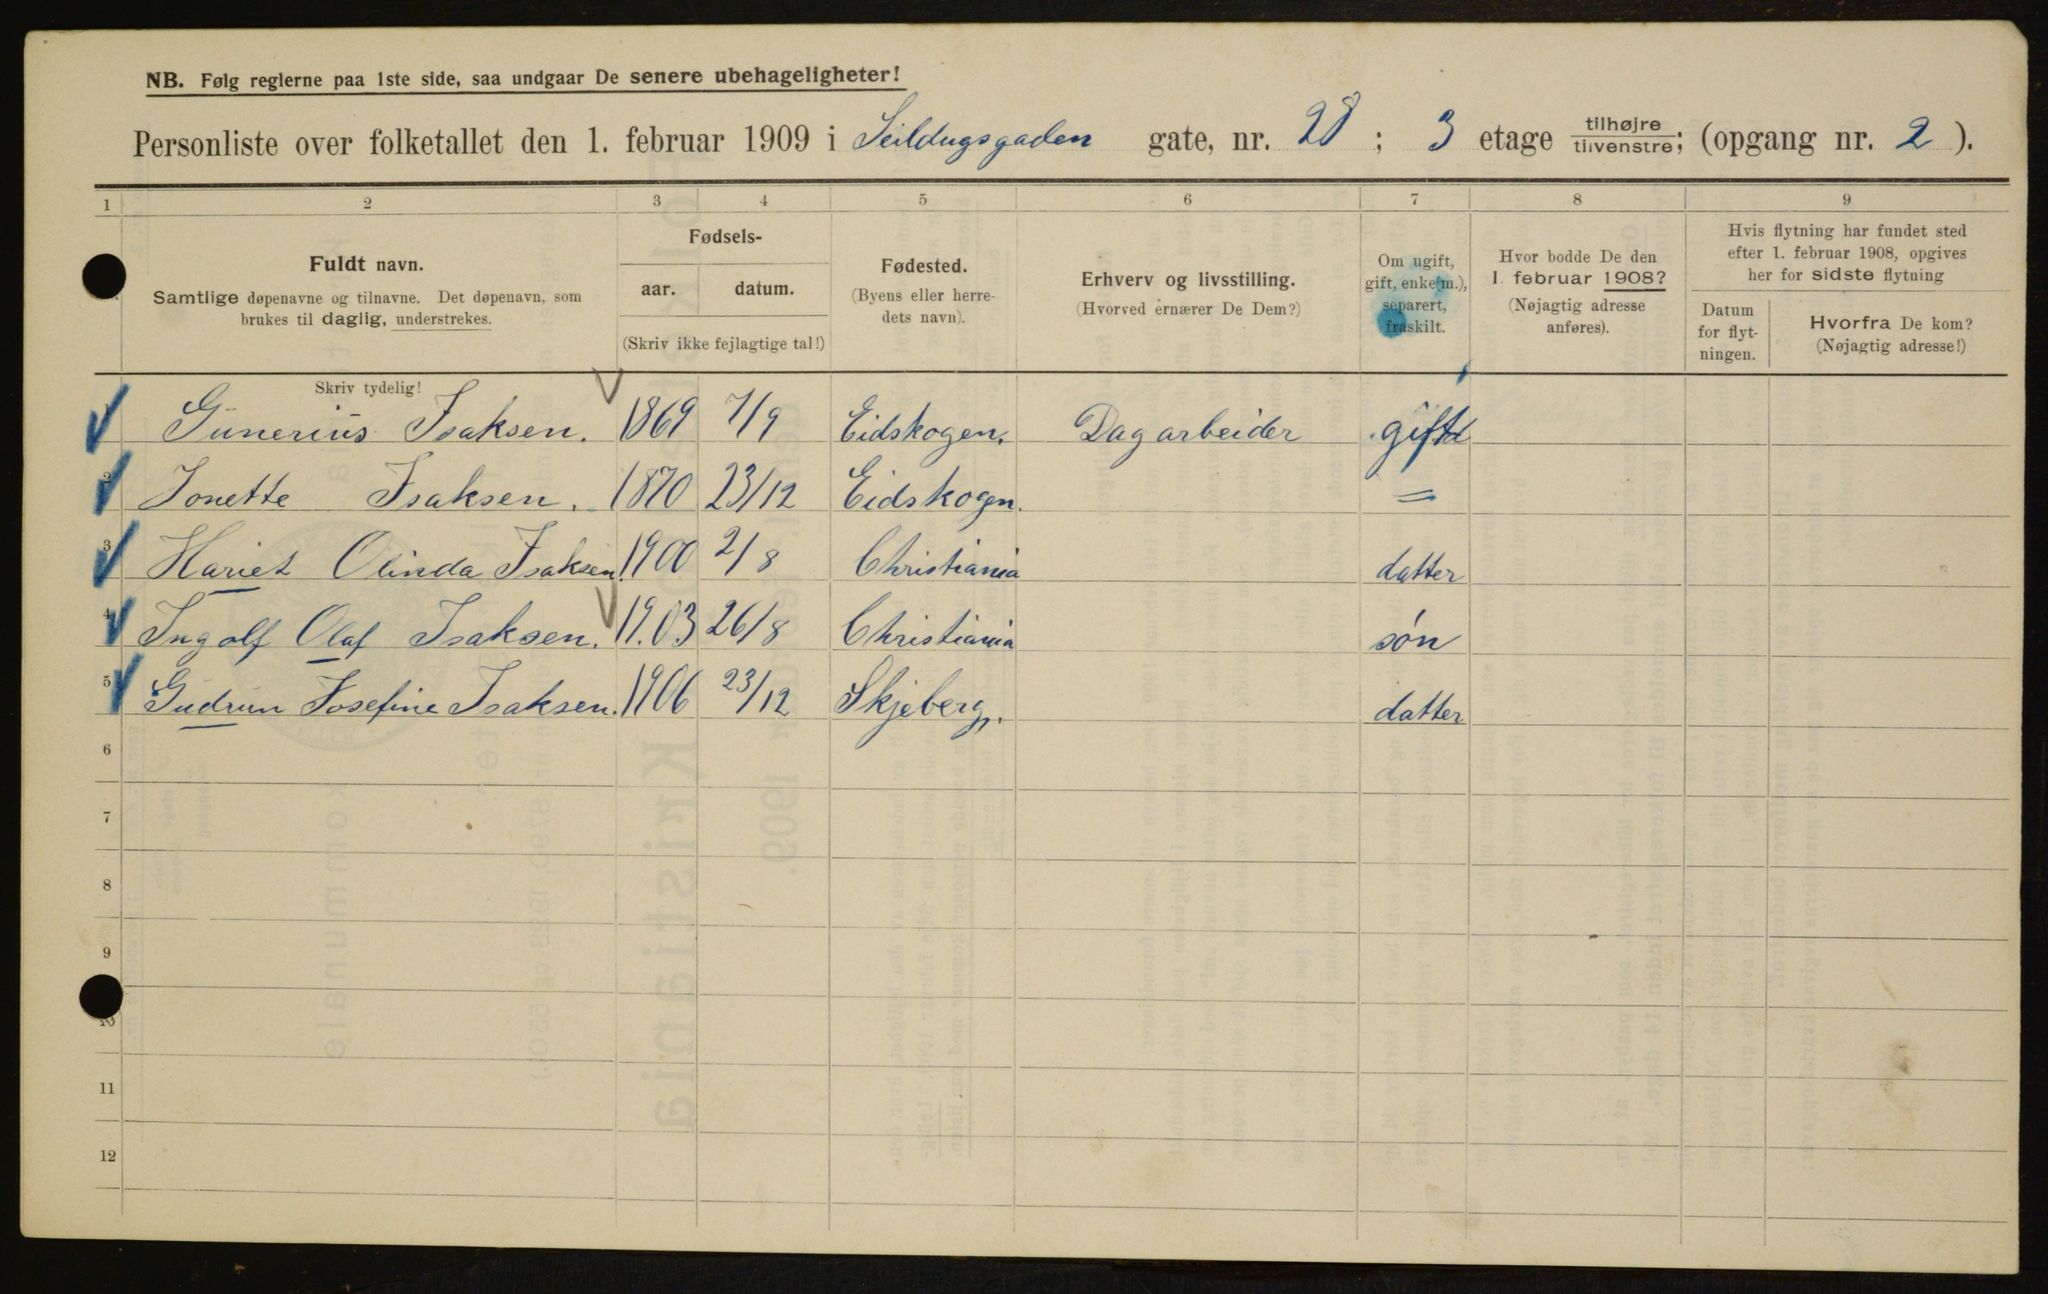 NB. Følg reglerne paa 1ste side, saa undgaar De senere ubehageligheter!
Personliste over folketallet den 1. februar 1909 i Seildugsgaden gate, nr. 28 ; 3 etage tilhøjre tilvenstre; (opgang nr. 2 ).
1 2 3 4 5 6 7 8 9
Fuldt navn.
Samtlige døpenavne og tilnavne. Det døpenavn, som
brukes til daglig, understrekes.
Fødsels-
aar. datum.
(Skriv ikke fejlagtige tal!)
Fødested.
(Byens eller herre-
dets navn).
Erhverv og livsstilling.
(Hvorved ernærer De Dem?)
Om ugift,
gift, enke(m.),
separert,
fraskilt.
Hvor bodde De den
1. februar 1908?
(Nøjagtig adresse
anføres).
Hvis flytning har fundet sted
efter 1. februar 1908, opgives
her for sidste flytning
Datum
for flyt-
ningen.
Hvorfra De kom?
(Nøjagtig adresse!)
Skriv tydelig!
Gunerius Isaksen. 1869 7/9 Eidskogen. Dagarbeider gift
2 Jonette Isaksen. 1870 23/12 Eidskogen. =
3 Hariet Olinda Isaksen. 1900 2/8 Christiania datter
4 Ingolf Olaf Isaksen. 19.03 26/8 Christiania søn
5 Gudrun Josefine Isaksen. 1906 23/12 Skjeberg. datter
6
7
8
9
10
11
12